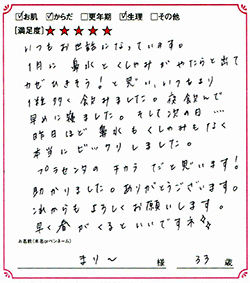 ☑お肌 ☑からだ □更年期 ☑生理 □その他
【満足度】★★★★★
いつもお世話になっています。
1月に鼻水とくしゃみがやたらと出て
カゼひきそう！と思い、いつもより
1粒多く飲みました。夜飲んで
早めに寝ました。そして次の日……
昨日ほど鼻水もくしゃみもなく
本当にビックリしました。
プラセンタのチカラだと思います!
助かりました。ありがとうございます。
これからもよろしくお願いします。
早く春がくるといいですネ✧
お名前(本名orペンネーム)
まり〜 様 33 歳